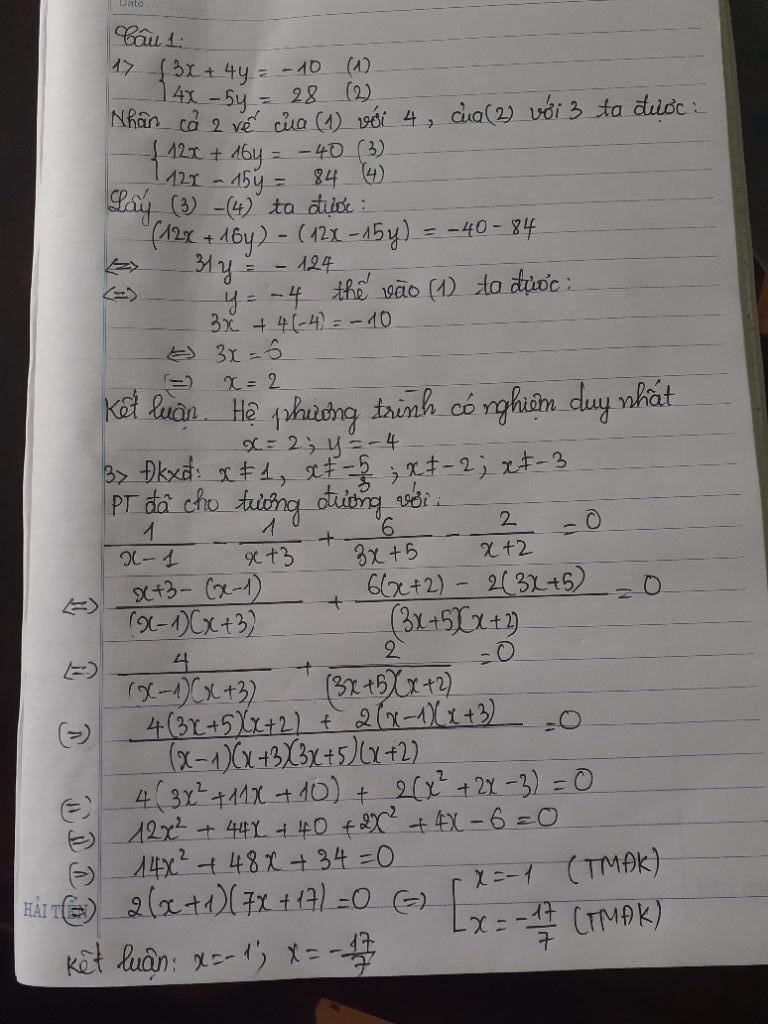 Date
Câu 1:
1> { 3x + 4y = -10 (1)
4x - 5y = 28 (2)
Nhân cả 2 vế của (1) với 4, của (2) với 3 ta được:
{ 12x + 16y = -40 (3)
12x - 15y = 84 (4)
Lấy (3) - (4) ta được:
(12x + 16y) - (12x - 15y) = -40 - 84
<=> 31y = -124
<=> y = -4 thế vào (1) ta được:
3x + 4(-4) = -10
<=> 3x = 6
<=> x = 2
Kết luận. Hệ phương trình có nghiệm duy nhất
x = 2; y = -4
3> Đkxđ: x ≠ 1, x ≠ -5/3; x ≠ -2; x ≠ -3
PT đã cho tương đương với:
1/(x-1) - 1/(x+3) + 6/(3x+5) - 2/(x+2) = 0
<=> (x+3-(x-1))/((x-1)(x+3)) + (6(x+2) - 2(3x+5))/((3x+5)(x+2)) = 0
<=> 4/((x-1)(x+3)) + 2/((3x+5)(x+2)) = 0
<=> (4(3x+5)(x+2) + 2(x-1)(x+3))/((x-1)(x+3)(3x+5)(x+2)) = 0
<=> 4(3x² + 11x + 10) + 2(x² + 2x - 3) = 0
<=> 12x² + 44x + 40 + 2x² + 4x - 6 = 0
<=> 14x² + 48x + 34 = 0
<=> 2(x+1)(7x+17) = 0 <=> [ x = -1 (TMĐK)
x = -17/7 (TMĐK)
HẢI TIẾN
Kết luận: x = -1; x = -17/7